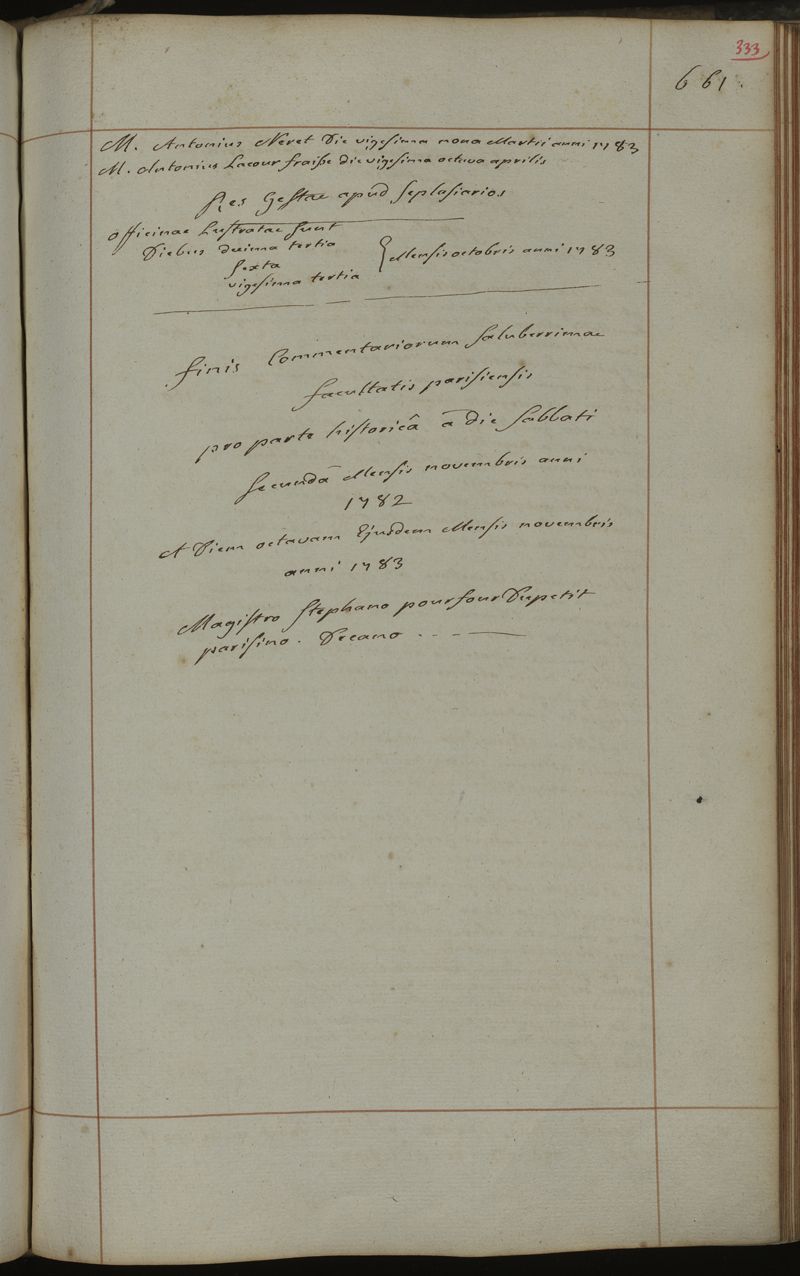 333
661.
M. Antonius Neret Die vigesima nona Martii anni 1783
M. Antonius Lacour fraisse die vigesima octava aprilis
Res Gestae apud Seplasiarios
officinae Lustratae sunt
Diebus decima tertia
sexta
vigesima tertia
Mensis octobris anni 1783
finis Commentariorum saluberrimae
facultatis parisiensis
pro parte historicâ a die sabbati
secunda Mensis novembris anni
1782
A Diem octavam Ejusdem Mensis novembris
anni 1783
Magistro Stephano pourfour Dupetit
parisino. Decano